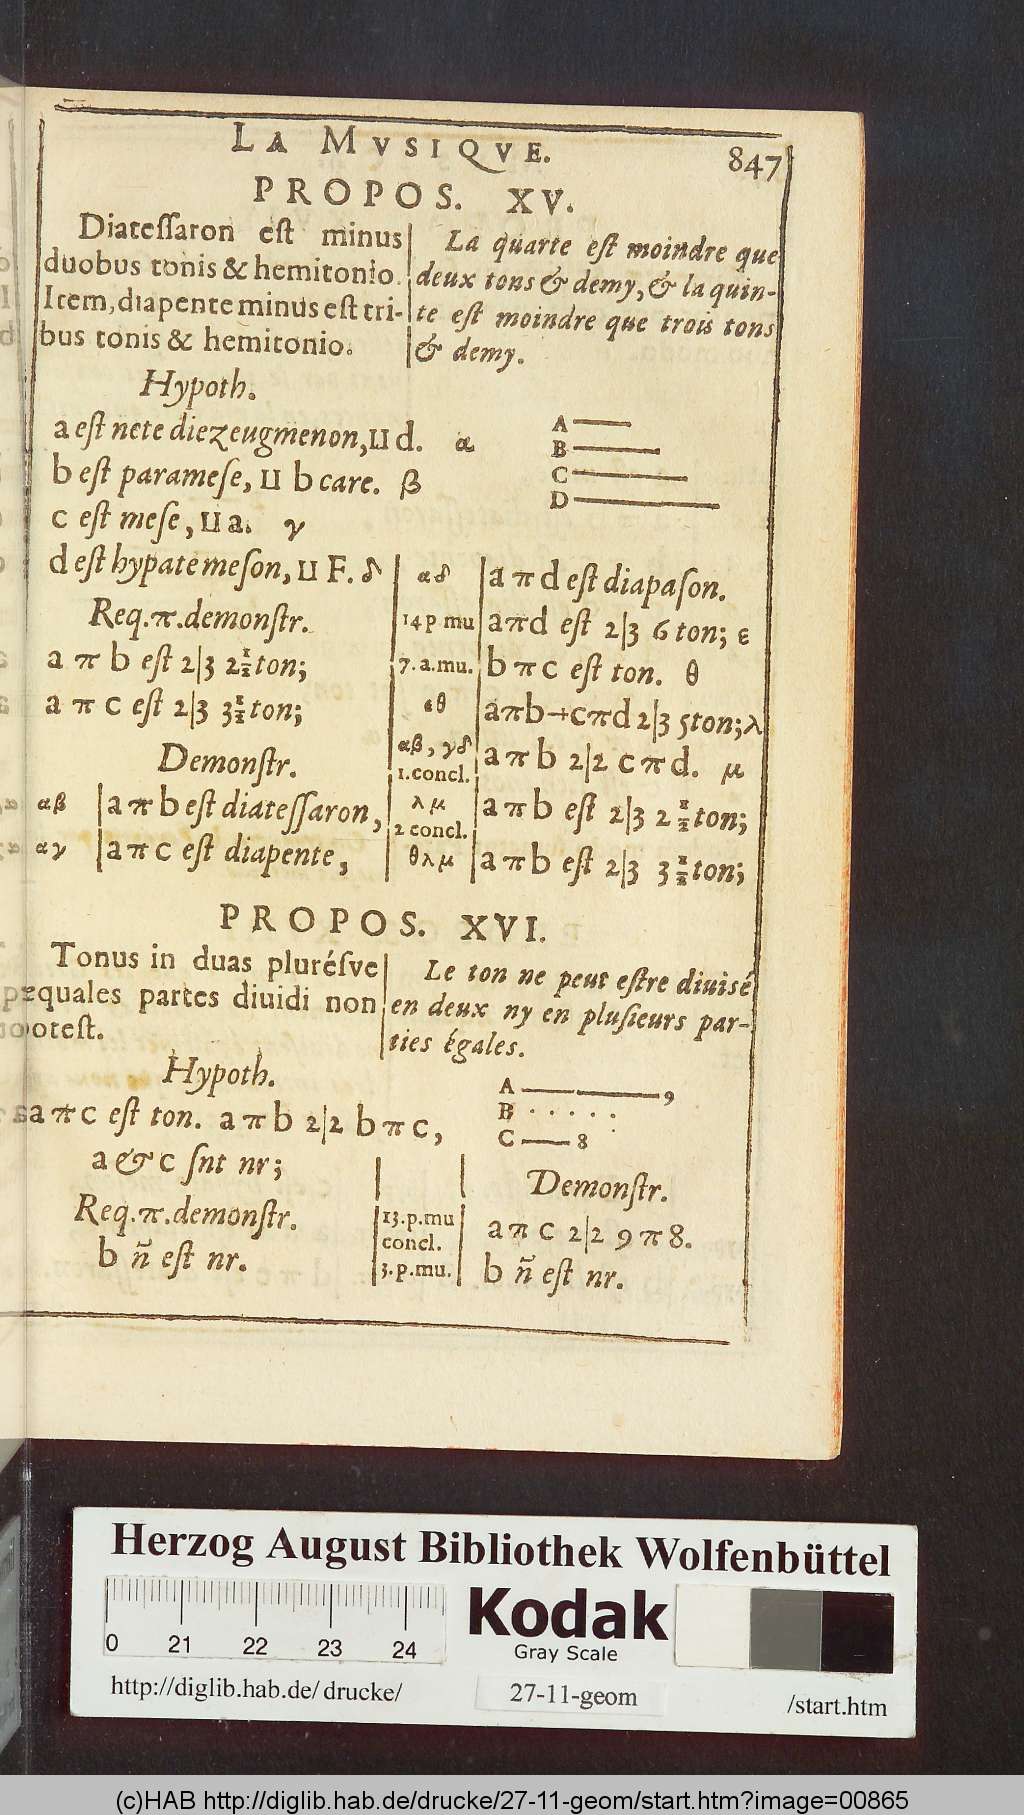 LA MVSIQVE.
847
PROPOS. XV.
Diatessaron est minus
duobus tonis & hemitonio.
Item, diapente minus est tri-
bus tonis & hemitonio.
La quarte est moindre que
deux tons & demy, & la quin-
te est moindre que trois tons
& demy.
Hypoth.
a est nete diezeugmenon, ⊔ d. α
b est paramese, ⊔ b care. β
c est mese, ⊔ a. γ
d est hypate meson, ⊔ F. δ
Req. π. demonstr.
a π b est 2|3 2½ ton;
a π c est 2|3 3½ ton;
Demonstr.
αβ | a π b est diatessaron,
αγ | a π c est diapente,
A
B
C
D
αδ | a π d est diapason.
14 p mu | a π d est 2|3 6 ton; ε
7. a. mu. | b π c est ton. θ
εθ | a π b + c π d 2|3 5 ton; λ
αβ, γδ | a π b 2|2 c π d. μ
1. concl.
λμ | a π b est 2|3 2½ ton;
2 concl.
θλμ | a π b est 2|3 3½ ton;
PROPOS. XVI.
Tonus in duas plurésve
æquales partes diuidi non
potest.
Le ton ne peut estre diuisé
en deux ny en plusieurs par-
ties égales.
Hypoth.
a π c est ton. a π b 2|2 b π c,
a & c snt nr;
Req. π. demonstr.
b ñ est nr.
A 9
B . . . . .
C 8
Demonstr.
13. p. mu | a π c 2|2 9 π 8.
concl.
3. p. mu. | b ñ est nr.
Herzog August Bibliothek Wolfenbüttel
0 21 22 23 24
Kodak
Gray Scale
http://diglib.hab.de/drucke/
27-11-geom
/start.htm
(c)HAB http://diglib.hab.de/drucke/27-11-geom/start.htm?image=00865